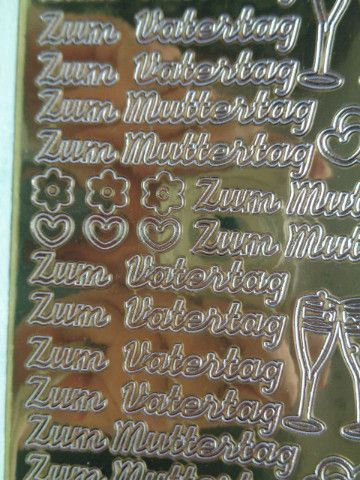 Zum Vatertag
Zum Vatertag
Zum Muttertag
Zum Muttertag
Zum Mut
Zum Mut
Zum Vatertag
Zum Vatertag
Zum Vatertag
Zum Vatertag
Zum Muttertag
Zum Muttertag